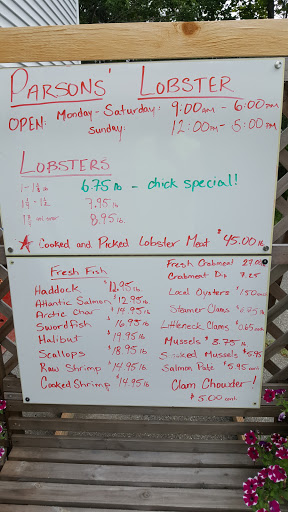 PARSONS' LOBSTER
OPEN: Monday-Saturday: 9:00am - 6:00pm
Sunday: 12:00pm - 5:00pm
LOBSTERS
1-1 1/8 lb 6.75 lb - chick special!
7.95 lb
8.95 lb
★ Cooked and Picked Lobster Meat $45.00 lb
Fresh Fish
Haddock $12.95 lb
Atlantic Salmon $12.95 lb
Arctic Char $14.95 lb
Swordfish $16.95 lb
Halibut $19.95 lb
Scallops $18.95 lb
Raw Shrimp $14.95 lb
Cooked Shrimp $14.95 lb
Fresh Crabmeat
Crabmeat Dip 7.25
Local Oysters $1.50 each
Steamer Clams
Littleneck Clams
Mussels $3.75 lb
Smoked Mussels $5.95
Salmon Pate $5.95 each
Clam Chowder!
$5.00 each